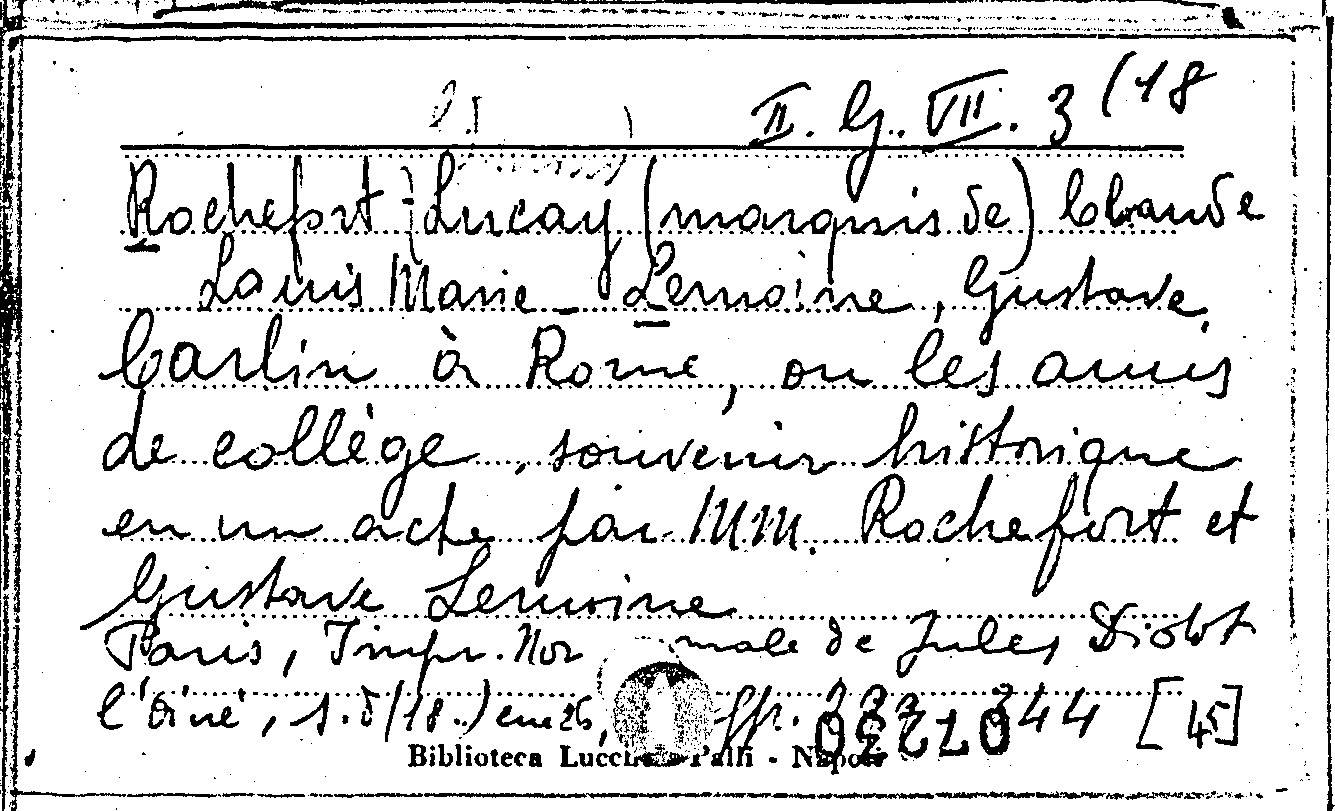 II. G. VII. 3 (18
Rochefort-Lucay (marquis de) Claude
Louis Marie - Lemoine, Gustave.
Carlin à Rome, ou les amis
de collège, souvenir historique
en un acte par MM. Rochefort et
Gustave Lemoine
Paris, Impr. Normale de Jules Didot
l'aîné, s.d (18..) cm 26, pp. 344 [45]
022730
Biblioteca Lucchesi Palli - Napoli